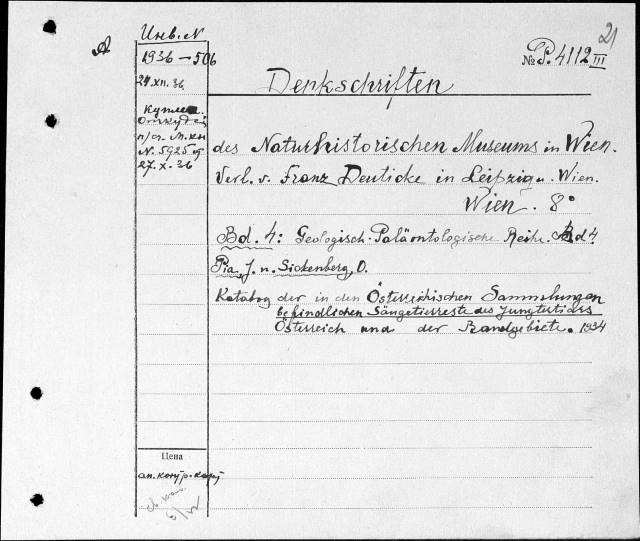 21
А
Инв. N
1936 — 506
№ P. 4112 III
27.XII.36
Denkschriften
N. 5925
27. X. 36
des Naturhistorischen Museums in Wien.
Verl. v. Franz Deuticke in Leipzig u. Wien.
Wien. 8°
Bd. 4: Geologisch-Paläontologische Reihe. Bd 4
Pia, J. u. Sickenberg, O.
Katalog der in den Österreichischen Sammlungen
befindlichen Säugetierreste des Jungtertiärs
Österreich und der Randgebiete. 1934
Цена